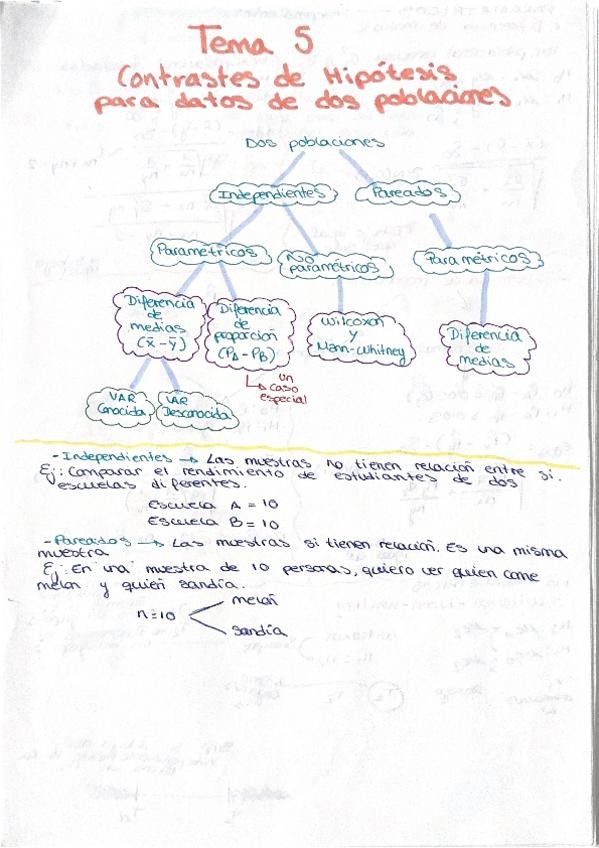 Tema 5
Contrastes de Hipótesis
para datos de dos poblaciones
Dos poblaciones
Independientes
Pareados
Paramétricos
No
paramétricos
Paramétricos
Diferencia
de
medias
(x̄ - ȳ)
Diferencia
de
proporción
(PA - PB)
Wilcoxon
y
Mann-Whitney
Diferencia
de
medias
un
caso
especial
VAR
Conocida
VAR
Desconocida
- Independientes → Las muestras no tienen relación entre si.
Ej: Comparar el rendimiento de estudiantes de dos
escuelas diferentes.
Escuela A = 10
Escuela B = 10
- Pareados → Las muestras si tienen relación. Es una misma
muestra
Ej: En una muestra de 10 personas, quiero ver quien come
melon y quien sandía.
n=10
melon
sandía